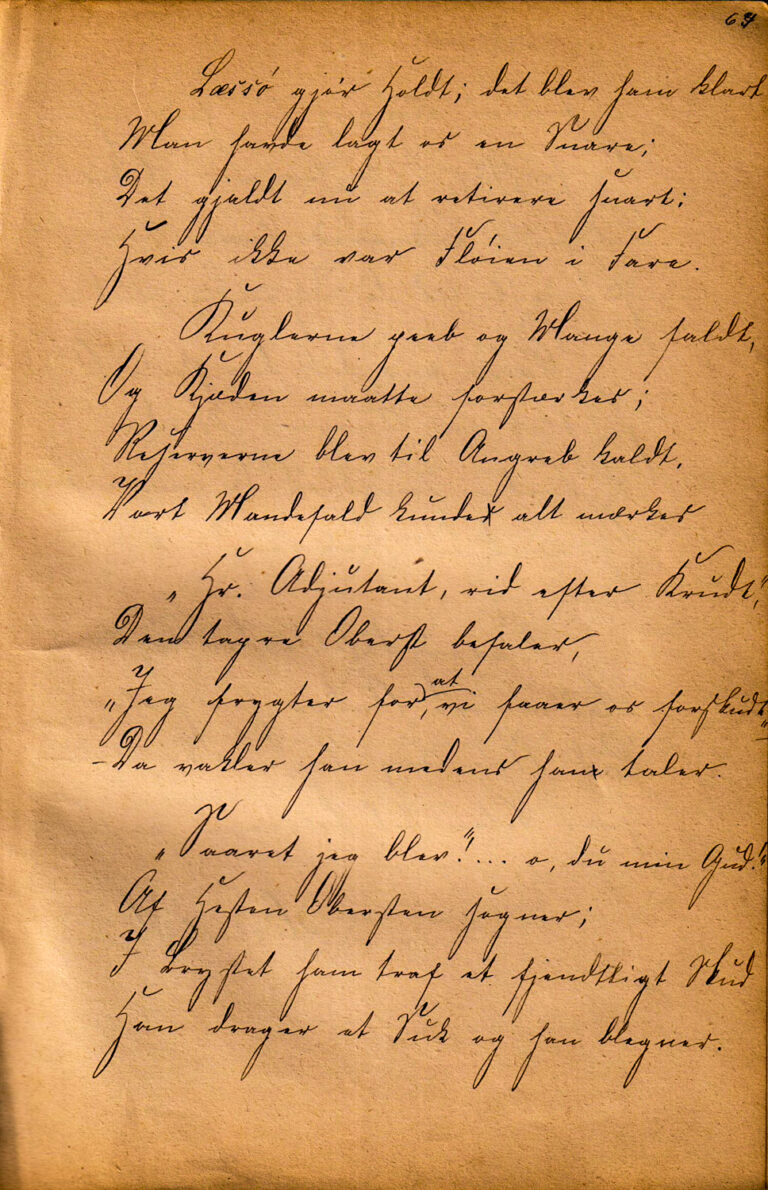 64
Læssö gjör Holdt; det blev ham klart
Man havde lagt os en Snare;
Det gjaldt nu at retirere snart;
Hvis ikke var Flöien i Fare.
Kuglerne peeb og Mange faldt,
Og Kjæden maatte forstærkes;
Reserverne blev til Angreb kaldt,
Vort Mandefald kunde alt mærkes
„Hr. Adjutant, rid efter Krudt",
Den tapre Oberst befaler,
„Jeg frygter for, at vi faaer os forskudt"
– Da vakler han medens han taler.
„Saaret jeg blev!"... o, du min Gud!"
Af Hesten Obersten segner;
I Brystet ham traf et fjendtligt Skud
Han drager et Suk og han blegner.